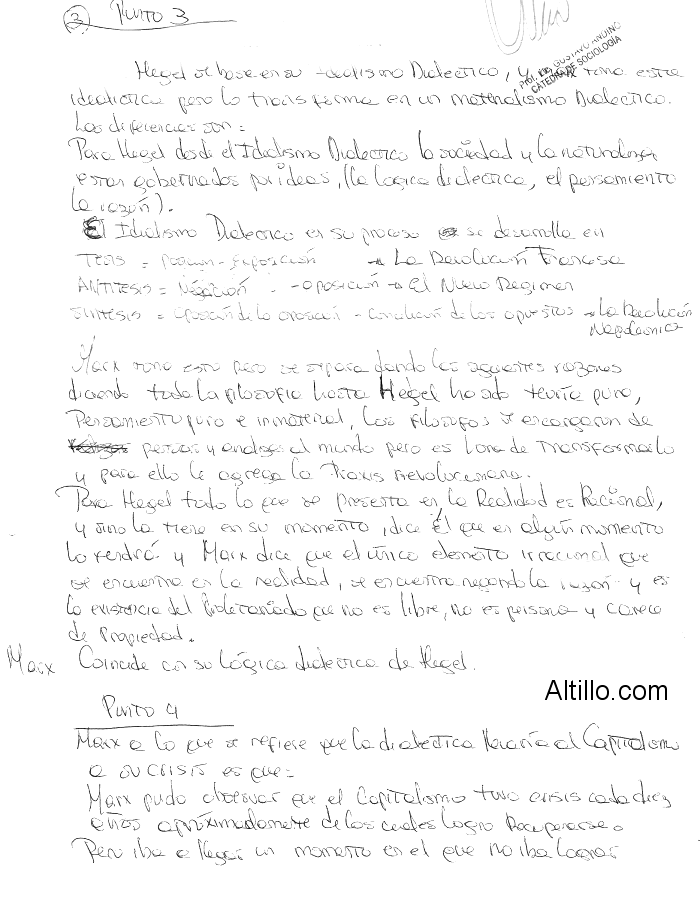 3 Punto 3
Prof. GUSTAVO ANDINO
CATEDRA DE SOCIOLOGIA
Hegel se base en su idealismo Dialectico, y toma esta
idealistica pero lo transforma en un materialismo Dialectico.
Las diferencias son:
Para Hegel desde el Idialismo Dialectico la sociedad y la naturaleza
estan gobernados por ideas, (la logica dialectica, el pensamiento
la razon).
El Idialismo Dialectico en su proceso se desarrolla en
TESIS = Posicion - Exposición → La Revolución Francesa
ANTITESIS = Negación - oposición → El Nuevo Regimen
SINTESIS = Oposición de la oposicion - conciliación de los opuestos → La Revolución
Napoleonica
Marx toma esto pero se separa dando las siguientes razones
diciendo toda la filosofia hasta Hegel ha sido teoría pura,
Pensamiento puro e inmaterial, Los filosofos se encargaron de
pensar y analizar al mundo pero es hora de Transformarlo
y para ello le agrega la Praxis Revolucionaria.
Para Hegel todo lo que se presenta en la Realidad es Racional,
y sino la tiene en su momento, dice él que en algún momento
la tendrá y Marx dice que el único elemento irracional que
se encuentra en la realidad, se encuentra negando la razón y es
la existencia del Proletariado que no es libre, no es persona y carece
de Propiedad.
Marx Coincide en su Lógica dialectica de Hegel.
Altillo.com
Punto 4
Marx a lo que se refiere que la dialectica llevaría al Capitalismo
a su CRISIS es que:
Marx pudo observar que el Capitalismo tuvo crisis cada diez
años aproximadamente de los cuales logro Recuperarse.
Pero iba a llegar un momento en el que no iba lograr